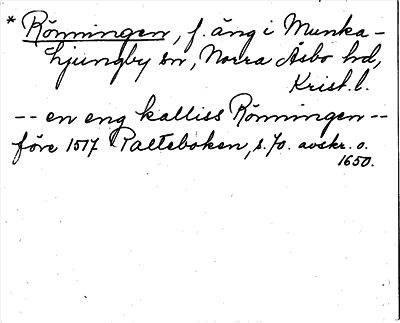 * Rönningen, f. äng i Munka-
Ljungby sn, Norra Åsbo hd,
Krist. l.
-- en eng kalliss Rönningen --
före 1517 Palteboken, s. 70. avskr. o.
1650.